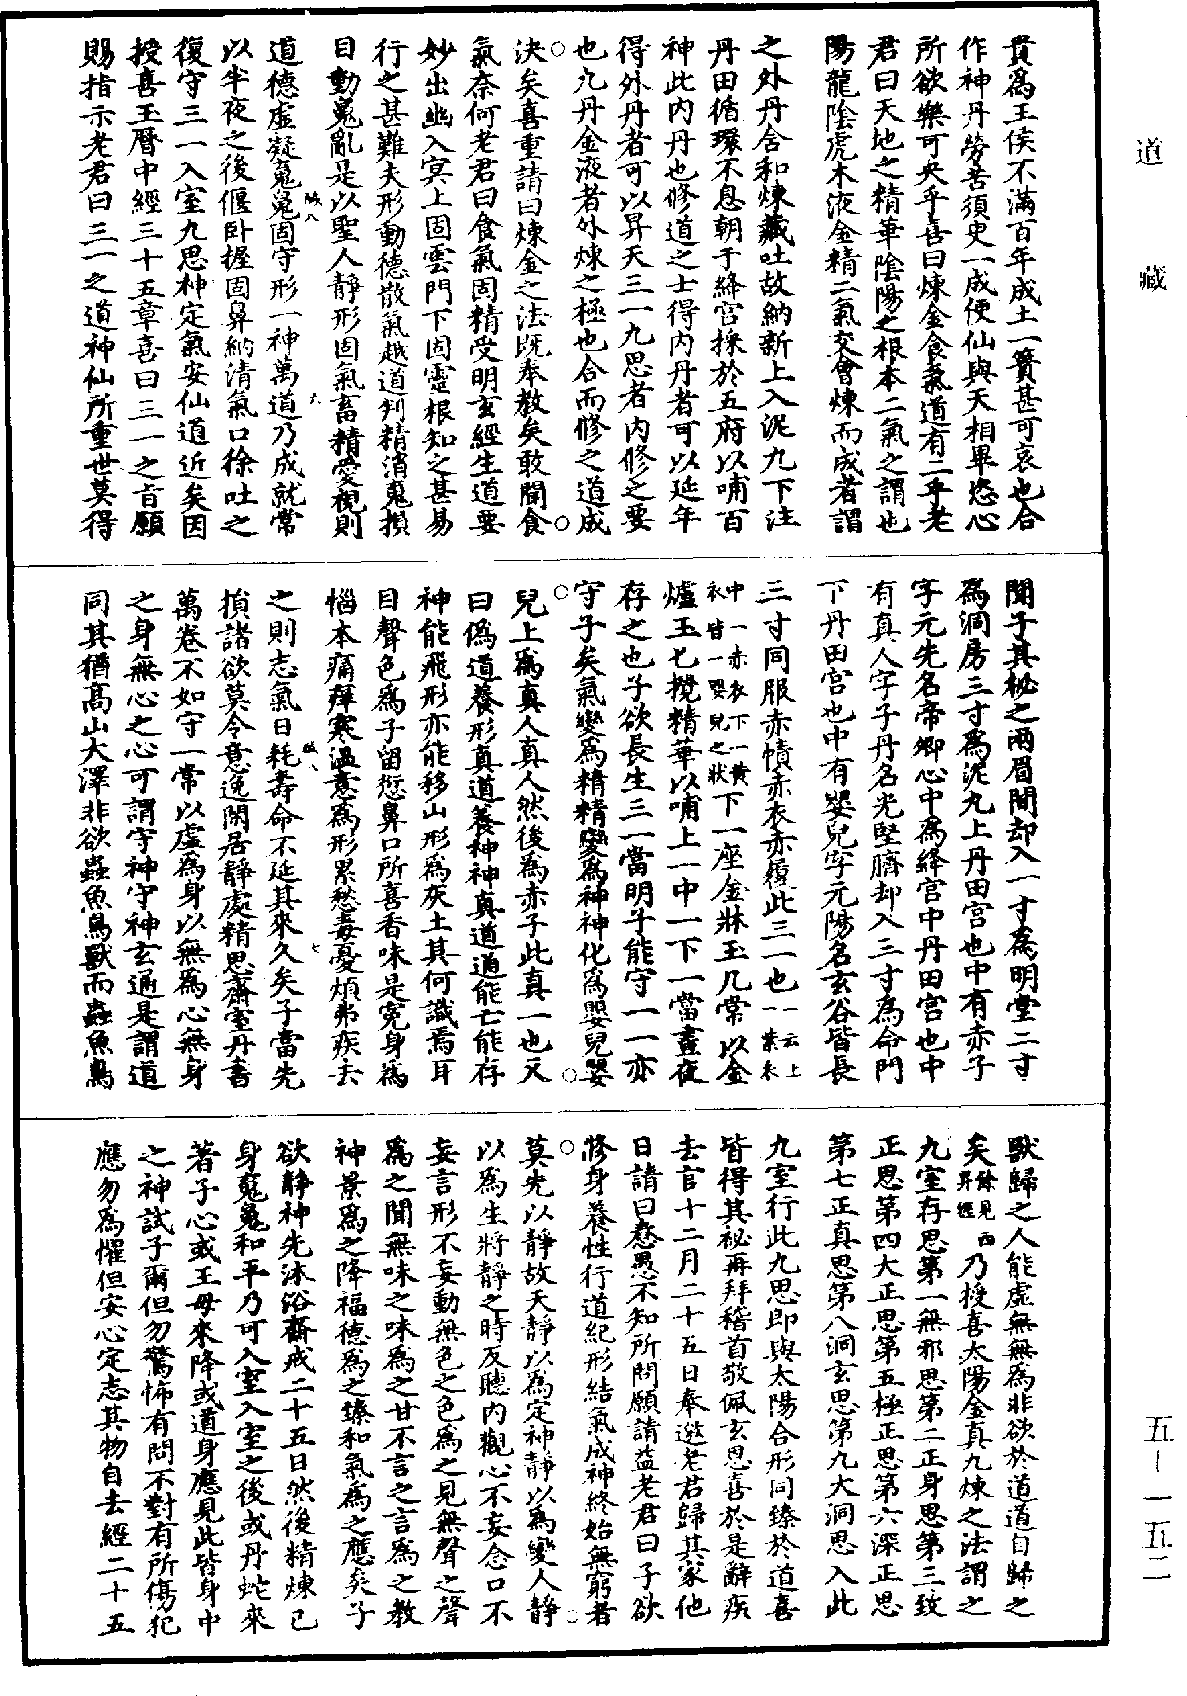 道藏
貴爲王侯不滿百年成土一簣甚可哀也合
作神丹勞苦須臾一成便仙與天相畢恣心
所欲樂可央乎喜曰煉金食氣道有二乎老
君曰天地之精華陰陽之根本二氣之謂也
陽龍陰虎木液金精二氣交會煉而成者謂
之外丹含和煉藏吐故納新上入泥丸下注
丹田循環不息朝于絳宮採於五府以哺百
神此内丹也修道之士得内丹者可以延年
得外丹者可以昇天三一九思者内修之要
也九丹金液者外煉之極也合而修之道成
決矣喜重請曰煉金之法既奉教矣敢聞食
氣奈何老君曰食氣固精受明玄經生道要
妙出幽入冥上固雲門下固靈根知之甚易
行之甚難夫形動德散氣越道判精消䰟損
目動䰟亂是以聖人静形固氣畜精愛視則
道德虚凝䰟䰟固守形一神萬道乃成就常
以半夜之後偃卧握固鼻納清氣口徐吐之
復守三一入室九思神定氣安仙道近矣因
授喜玉曆中經三十五章喜曰三一之旨願
賜指示老君曰三一之道神仙所重世莫得
聞子其秘之兩眉間却入一寸爲明堂二寸
爲洞房三寸爲泥丸上丹田宮也中有赤子
字元先名帝卿心中爲絳宮中丹田宮也中
有真人字子丹名光堅臍却入三寸爲命門
下丹田宮也中有嬰兒字元陽名玄谷皆長
三寸同服赤幘赤衣赤履此三一也一云上一紫衣
中一赤衣下一黄衣皆一嬰兒之狀下一座金牀玉几常以金
爐玉匕攪精華以哺上一中一下一當晝夜
存之也子欲長生三一當明子能守一一亦
守子矣氣變爲精精變爲神神化爲嬰兒嬰
兒上爲真人真人然後爲赤子此真一也又
曰僞道養形真道養神神真道道能亡能存
神能飛形亦能移山形爲灰土其何識焉耳
目聲色爲子留愆鼻口所喜香味是寃身爲
惱本痛痒寒温意爲形累愁毒憂煩弗疾去
之則志氣日耗壽命不延其來久矣子當先
損諸欲莫令意逸閑居静處精思齋室丹書
萬卷不如守一常以虚爲身以無爲心無身
之身無心之心可謂守神守神玄通是謂道
同其猶高山大澤非欲蟲魚鳥獸而蟲魚鳥
獸歸之人能虚無無爲非欲於道道自歸之
矣餘見西昇經乃授喜太陽金真九煉之法謂之
九室存思第一無邪思第二正身思第三致
正思第四大正思第五極正思第六深正思
第七正真思第八洞玄思第九大洞思入此
九室行此九思即與太陽合形同臻於道喜
皆得其祕再拜稽首敬佩玄思喜於是辭疾
去官十二月二十五日奉邀老君歸其家他
日請曰愗愚不知所問願請益老君曰子欲
修身養性行道紀形結氣成神終始無窮者
莫先以静故天静以爲定神静以爲變人静
以爲生將静之時反聽内觀心不妄念口不
妄言形不妄動無色之色爲之見無聲之聲
爲之聞無味之味爲之甘不言之言爲之教
神景爲之降福德爲之臻和氣爲之應矣子
欲静神先沐浴齋戒二十五日然後精煉已
身䰟䰟和平乃可入室入室之後或丹蛇來
著子心或王母來降或道身應見此皆身中
之神試子爾但勿驚怖有問不對有所傷犯
應勿爲懼但安心定志其物自去經二十五
五—一五二